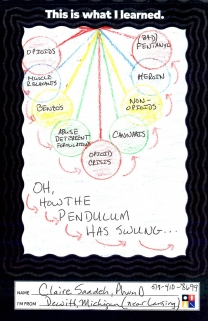 This is what I learned.
OPIOIDS
(BAD)
FENTANYL
MUSCLE
RELAXERS
HEROIN
BENZOS
NON-
OPIOIDS
ABUSE
DETERRENT
FORMULATIONS
CANNABIS
OPIOID
CRISIS
OH,
HOW THE
PENDULUM
HAS SWUNG...
NAME Claire Saadeh, PharmD
I'M FROM Dewitt, Michigan (near Lansing)